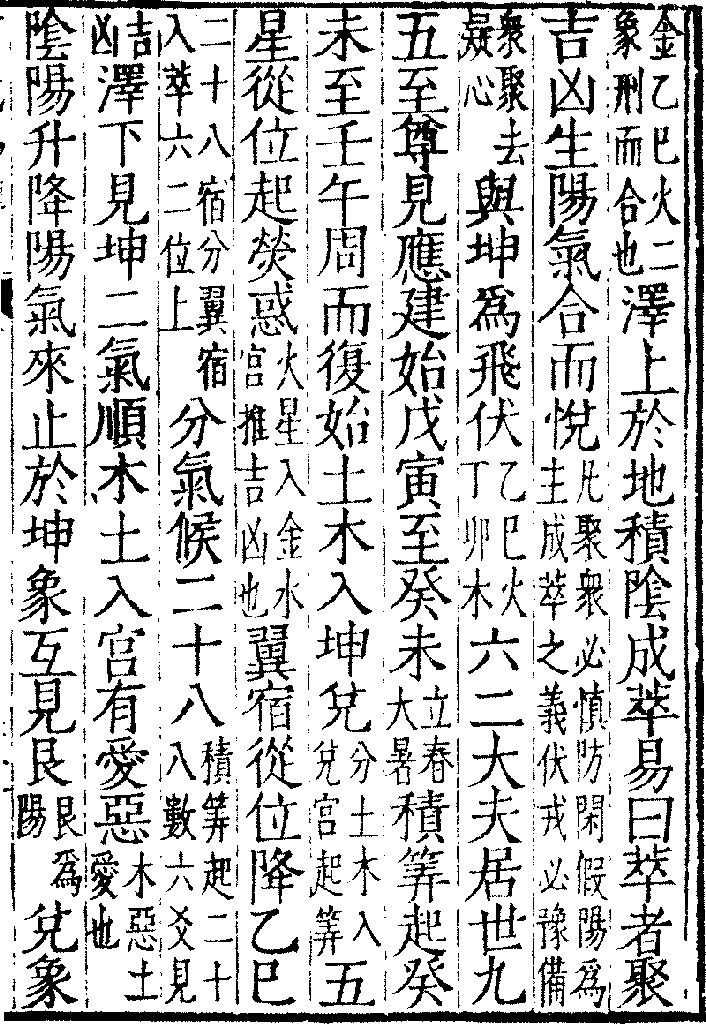 金乙巳火二象刑而合也澤上於地積陰成萃易曰萃者聚
吉凶生陽氣合而悅凡聚衆必慎防閑假陽爲主成萃之義伏戎必豫備
衆聚去疑心與坤爲飛伏乙巳火丁卯木六二大夫居世九
五至尊見應建始戊寅至癸未立春大暑積筭起癸
未至壬午周而復始土木入坤兌分土木入兌宮起筭五
星從位起熒惑火星入金水宮推吉凶也翼宿從位降乙巳
二十八宿分翼宿入萃六二位上分氣候二十八積筭起二十八數六爻見
吉凶澤下見坤二氣順木土入宮有愛惡木惡土愛也
陰陽升降陽氣來止於坤象互見艮艮爲陽兌象